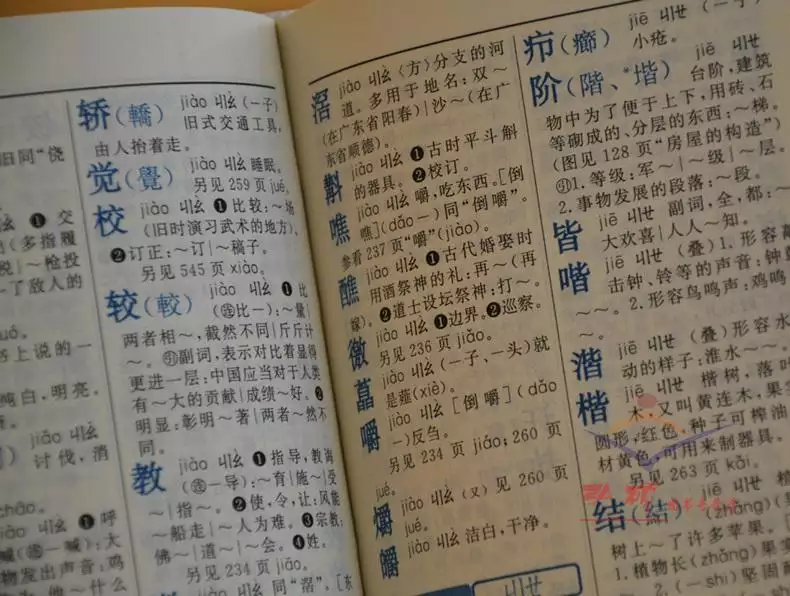 旧同“侥
❶ 交
(多指履
脱｜～枪投
～了敌人的
书上说的一
纯白，明亮。
jiào ㄐㄧㄠ
讨伐，消
❶呼
喊(㊣一喊)：大
物发出声音：鸡
轿(轎) jiào ㄐㄧㄠ (一子)
旧式交通工具，
由人抬着走。
觉(覺) jiào ㄐㄧㄠ 睡眠。
另见 259 页 jué。
校 jiào ㄐㄧㄠ ❶比较：～场
(旧时演习武术的地方)。
❷订正：～订｜～稿子。
另见 545 页 xiào。
较(較) jiào ㄐㄧㄠ ❶比
(㊣比一)：～量｜
两者相～，截然不同｜斤斤计
～。㊀副词，表示对比着显得
更进一层：中国应当对于人类
有～大的贡献｜成绩～好。❷
明显：彰明～著｜两者～然不
同。
教 jiào ㄐㄧㄠ ❶指导，教诲
(㊣一导)：～育｜施～｜受
～｜指～。❷使，令，让：风能
～船走｜～人为难。❸宗教：
佛～｜道～｜～会。❹姓。
另见 234 页 jiāo。
jiào ㄐㄧㄠ 同“滘”。[东
滘 jiào ㄐㄧㄠ〈方〉分支的河
道。多用于地名：双～
(在广东省阳春)｜沙～(在广
东省顺德)。
斠 jiào ㄐㄧㄠ ❶古时平斗斛
的器具。❷校订。
噍 jiào ㄐㄧㄠ 嚼，吃东西。[倒
噍](dǎo－)同“倒嚼”。
参看237页“嚼”(jiào)。
醮 jiào ㄐㄧㄠ ❶古代婚娶时
用酒祭神的礼：再～(再
嫁)。❷道士设坛祭神：打～。
徼 jiào ㄐㄧㄠ ❶边界。❷巡察。
另见 236 页 jiǎo。
藠 jiào ㄐㄧㄠ (一子、一头)就
是薤(xiè)。
嚼 jiào ㄐㄧㄠ [倒嚼](dǎo
－)反刍。
另见 234 页 jiáo；260 页
jué。
爝 jiào ㄐㄧㄠ (又)见 260 页
jué。
皭 jiào ㄐㄧㄠ 洁白，干净。
ㄐㄧㄝ
疖(癤) jiē ㄐㄧㄝ (一子)
小疮。
阶(階、堦) jiē ㄐㄧㄝ 台阶，建筑
物中为了便于上下，用砖、石
等砌成的、分层的东西：～梯。
(图见 128 页“房屋的构造”)
㊀1.等级：军～｜～级｜～层。
2.事物发展的段落：～段。
皆 jiē ㄐㄧㄝ 副词，全，都：～
大欢喜｜人人～知。
喈 jiē ㄐㄧㄝ (叠)1.形容
击钟、铃等的声音：钟鼓
～～。2.形容鸟鸣声：鸡鸣
～～。
湝 jiē ㄐㄧㄝ (叠)形容水
动的样子：淮水～～。
楷 jiē ㄐㄧㄝ 楷树，落叶
木，又叫黄连木，果
圆形，红色，种子可榨油
材黄色，可用来制器具。
另见 263 页 kǎi。
结(結) jiē ㄐㄧㄝ
树上～了许多苹果。
1.植物长(zhǎng)果实
2.(－shi)坚固耐